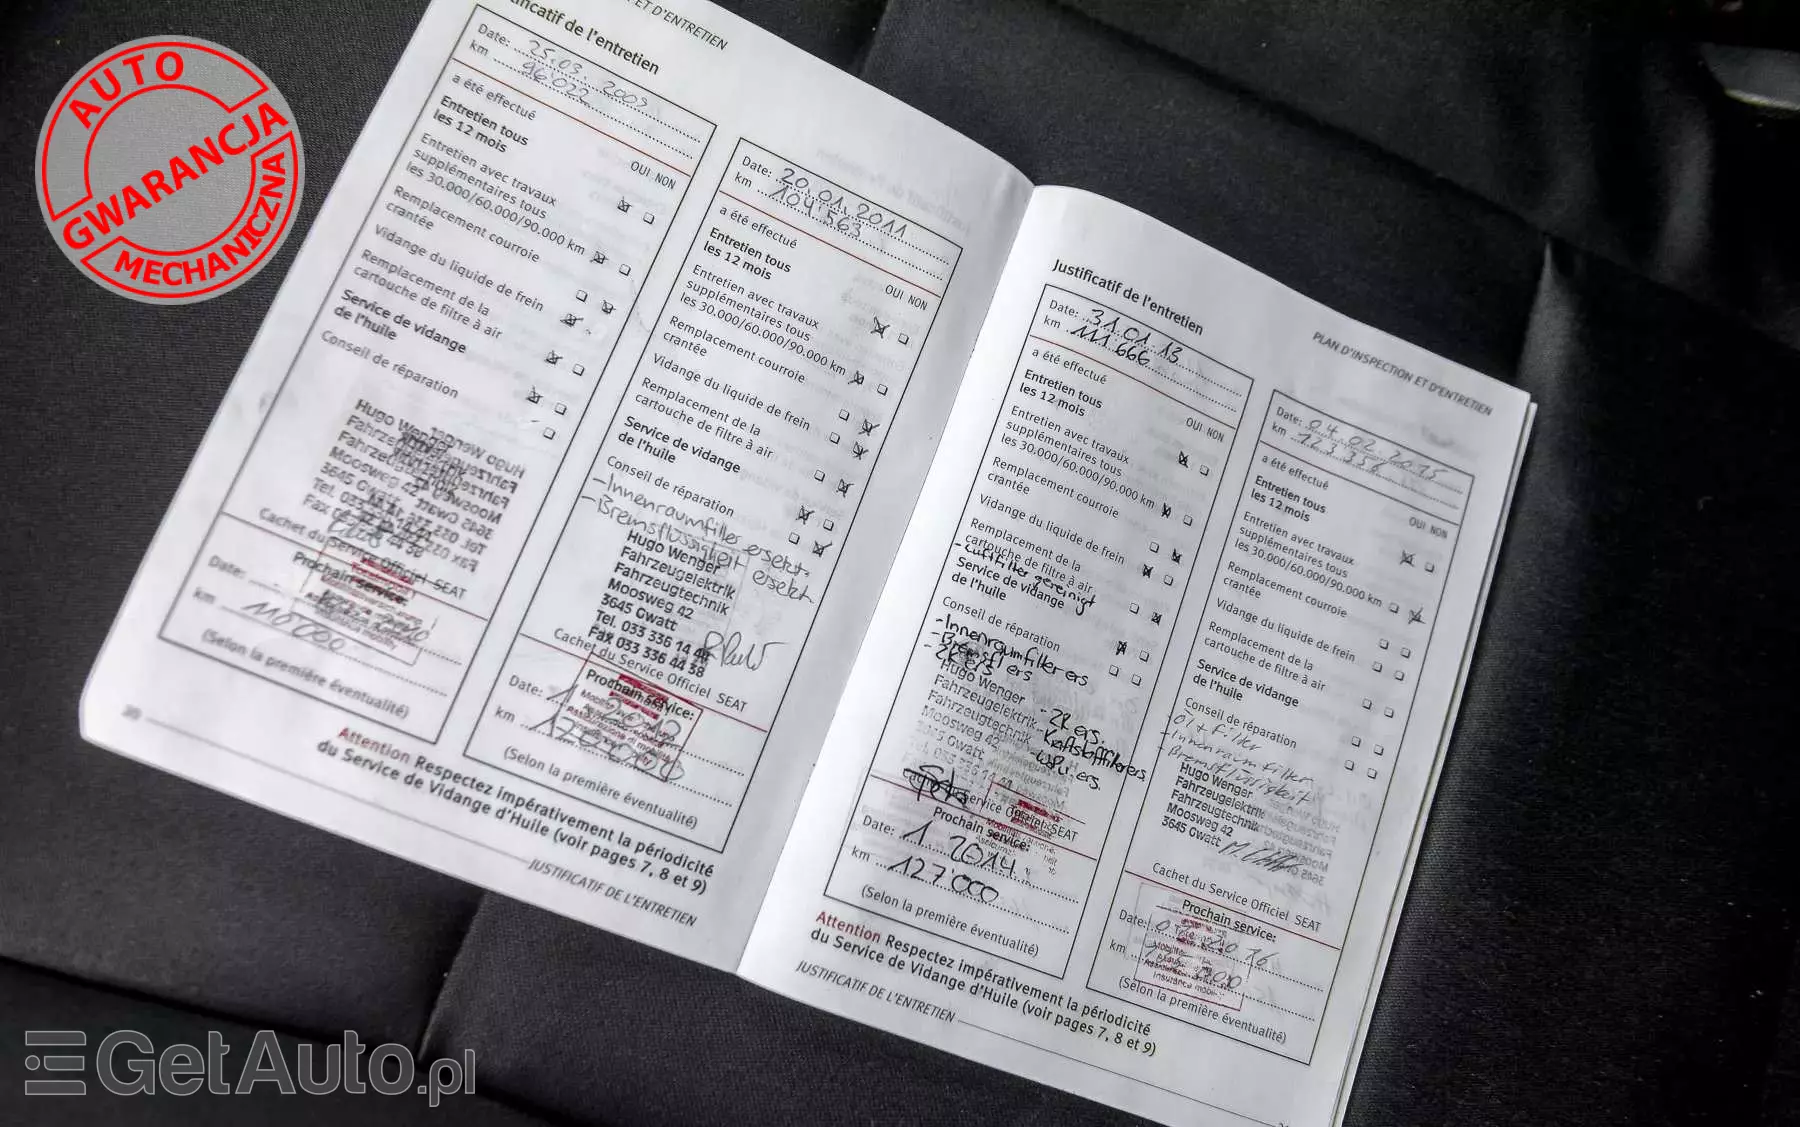 AUTO
GWARANCJA
MECHANICZNA
ET D'ENTRETIEN
de l'entretien
Date: 25.03. 2009
km 96'022
a été effectué
OUI NON
Entretien tous
les 12 mois
Entretien avec travaux
supplémentaires tous
les 30.000/60.000/90.000 km
Remplacement courroie
crantée
Vidange du liquide de frein
Remplacement de la
cartouche de filtre à air
Service de vidange
de l'huile
Conseil de réparation
Hugo Wenger
Moosweg 42
3645 Gwatt
Cachet du Service Officiel SEAT
Prochain service:
Date:
km 110'000
(Selon la première éventualité)
Date: 20.01.2011
km 104'563
a été effectué
OUI NON
Entretien tous
les 12 mois
Entretien avec travaux
supplémentaires tous
les 30.000/60.000/90.000 km
Remplacement courroie
crantée
Vidange du liquide de frein
Remplacement de la
cartouche de filtre à air
Service de vidange
de l'huile
Conseil de réparation
- Innenraumfilter ersetzt.
- Bremsflüssigkeit ersetzt.
Hugo Wenger
Fahrzeugelektrik
Fahrzeugtechnik
Moosweg 42
3645 Gwatt
Tel. 033 336 14 44
Fax 033 336 44 38
Cachet du Service Officiel SEAT
Prochain service:
Date:
km
(Selon la première éventualité)
Attention Respectez impérativement la périodicité
du Service de Vidange d'Huile (voir pages 7, 8 et 9)
JUSTIFICATIF DE L'ENTRETIEN
PLAN D'INSPECTION ET D'ENTRETIEN
Justificatif de l'entretien
Date: 31.01.13
km 111'666
a été effectué
OUI NON
Entretien tous
les 12 mois
Entretien avec travaux
supplémentaires tous
les 30.000/60.000/90.000 km
Remplacement courroie
crantée
Vidange du liquide de frein
Remplacement de la
cartouche de filtre à air
- Luftfilter gereinigt
Service de vidange
de l'huile
Conseil de réparation
- Innenraumfilter ers
- Bremsfl ers
Hugo Wenger
Fahrzeugelektrik
Fahrzeugtechnik
Moosweg 42
3645 Gwatt
Prochain service:
Date: 1. 2014
km 127'000
(Selon la première éventualité)
Date: 04.02.2015
km 123'356
a été effectué
OUI NON
Entretien tous
les 12 mois
Entretien avec travaux
supplémentaires tous
les 30.000/60.000/90.000 km
Remplacement courroie
crantée
Vidange du liquide de frein
Remplacement de la
cartouche de filtre à air
Service de vidange
de l'huile
Conseil de réparation
- Öl + Filter
- Innenraumfilter
- Bremsflüssigkeit
Hugo Wenger
Fahrzeugelektrik
Fahrzeugtechnik
Moosweg 42
3645 Gwatt
Cachet du Service Officiel SEAT
Prochain service:
Date:
km
(Selon la première éventualité)
Attention Respectez impérativement la périodicité
du Service de Vidange d'Huile (voir pages 7, 8 et 9)
JUSTIFICATIF DE L'ENTRETIEN
GetAuto.pl